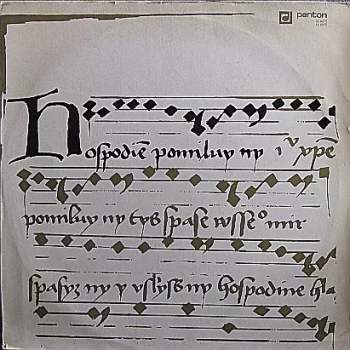 panton
Hospodiē pomiluy ny
pomiluy ny tys spase wsseᵒ mir
spasyz ny y uslyss ny hospodine hla